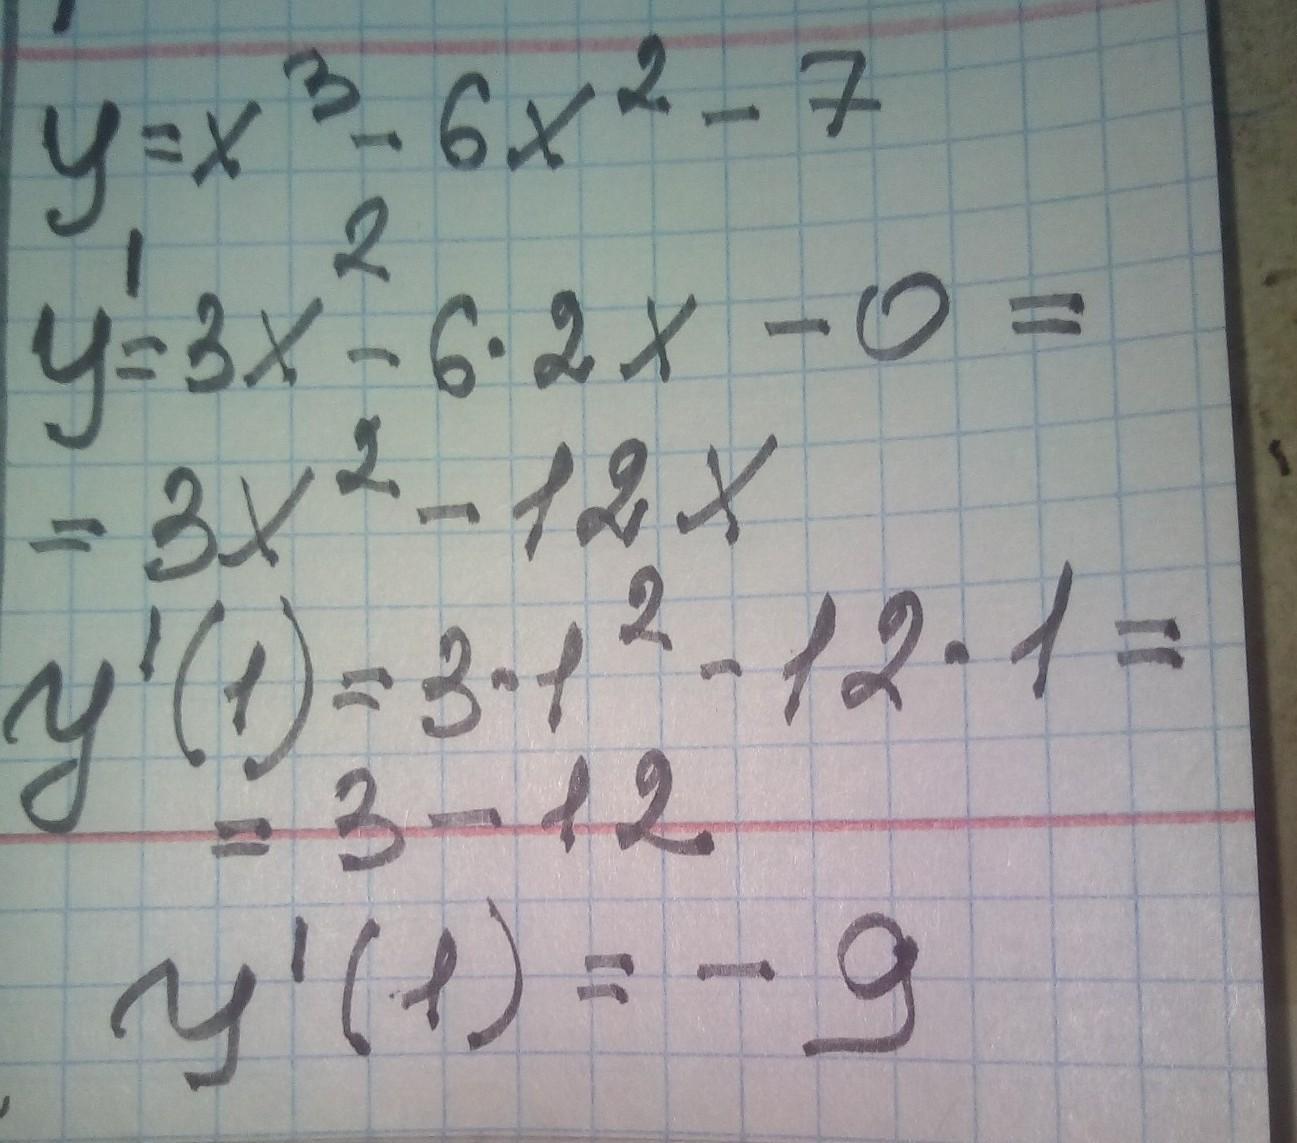 y = x³ - 6x² - 7
y' = 3x² - 6·2x - 0 =
= 3x² - 12x
y'(1) = 3·1² - 12·1 =
= 3 - 12
y'(1) = - 9